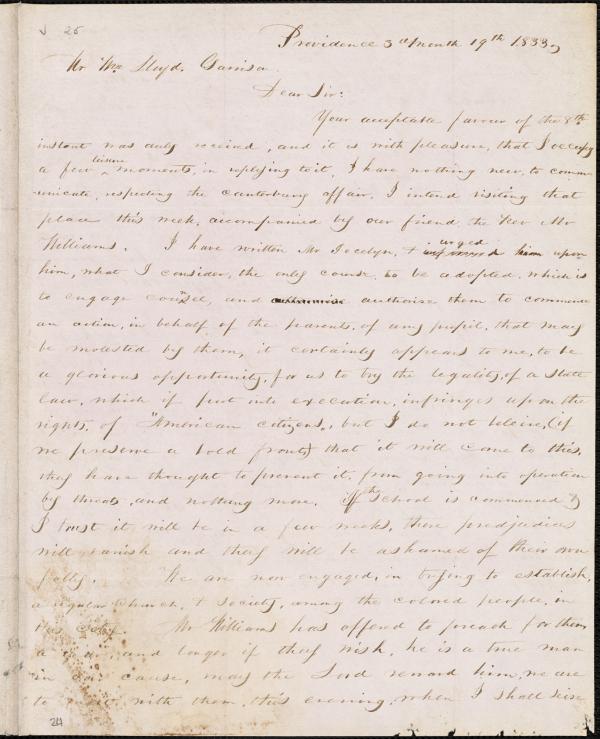 25
Providence 3d Month 19th 1833,
Mr Wm Lloyd. Garrison
Dear Sir:
Your acceptable favour of the 8th
instant was duly received, and it is with pleasure, that I occupy
a few leisure moments, in replying to it, I have nothing new, to comm-
unicate, respecting the canterbury affair, I intend visiting that
place this week, accompanied by our friend the Rev Mr
Williams. I have written Mr Jocelyn, & urged upon
him, what I consider, the only course, to be adopted, which is
to engage counsel, and authorise them to commence
an action, in behalf, of the parents, of any pupil, that may
be molested by them, it certainly appears to me, to be
a glorious opportunity, for us to try the legality, of a State
law, which if put into execution, infringes upon the
rights, of "American citizens,, but I do not beleive, (if
we preserve a bold front) that it will come to this,
they have thought to prevent it, from going into operation
by threats, and nothing more. If the School is commenced &
I trust it will be in a few weeks, these predjudices
will vanish and they will be ashamed of their own
folly. We are now engaged, in trying to establish,
a regular Church, & Society, among the colored people, in
this City. Mr Williams has offered to preach for them
a and longer if they wish, he is a true man
in our cause, may the Lord reward him, we are
to meet with them, this evening, when I shall
24